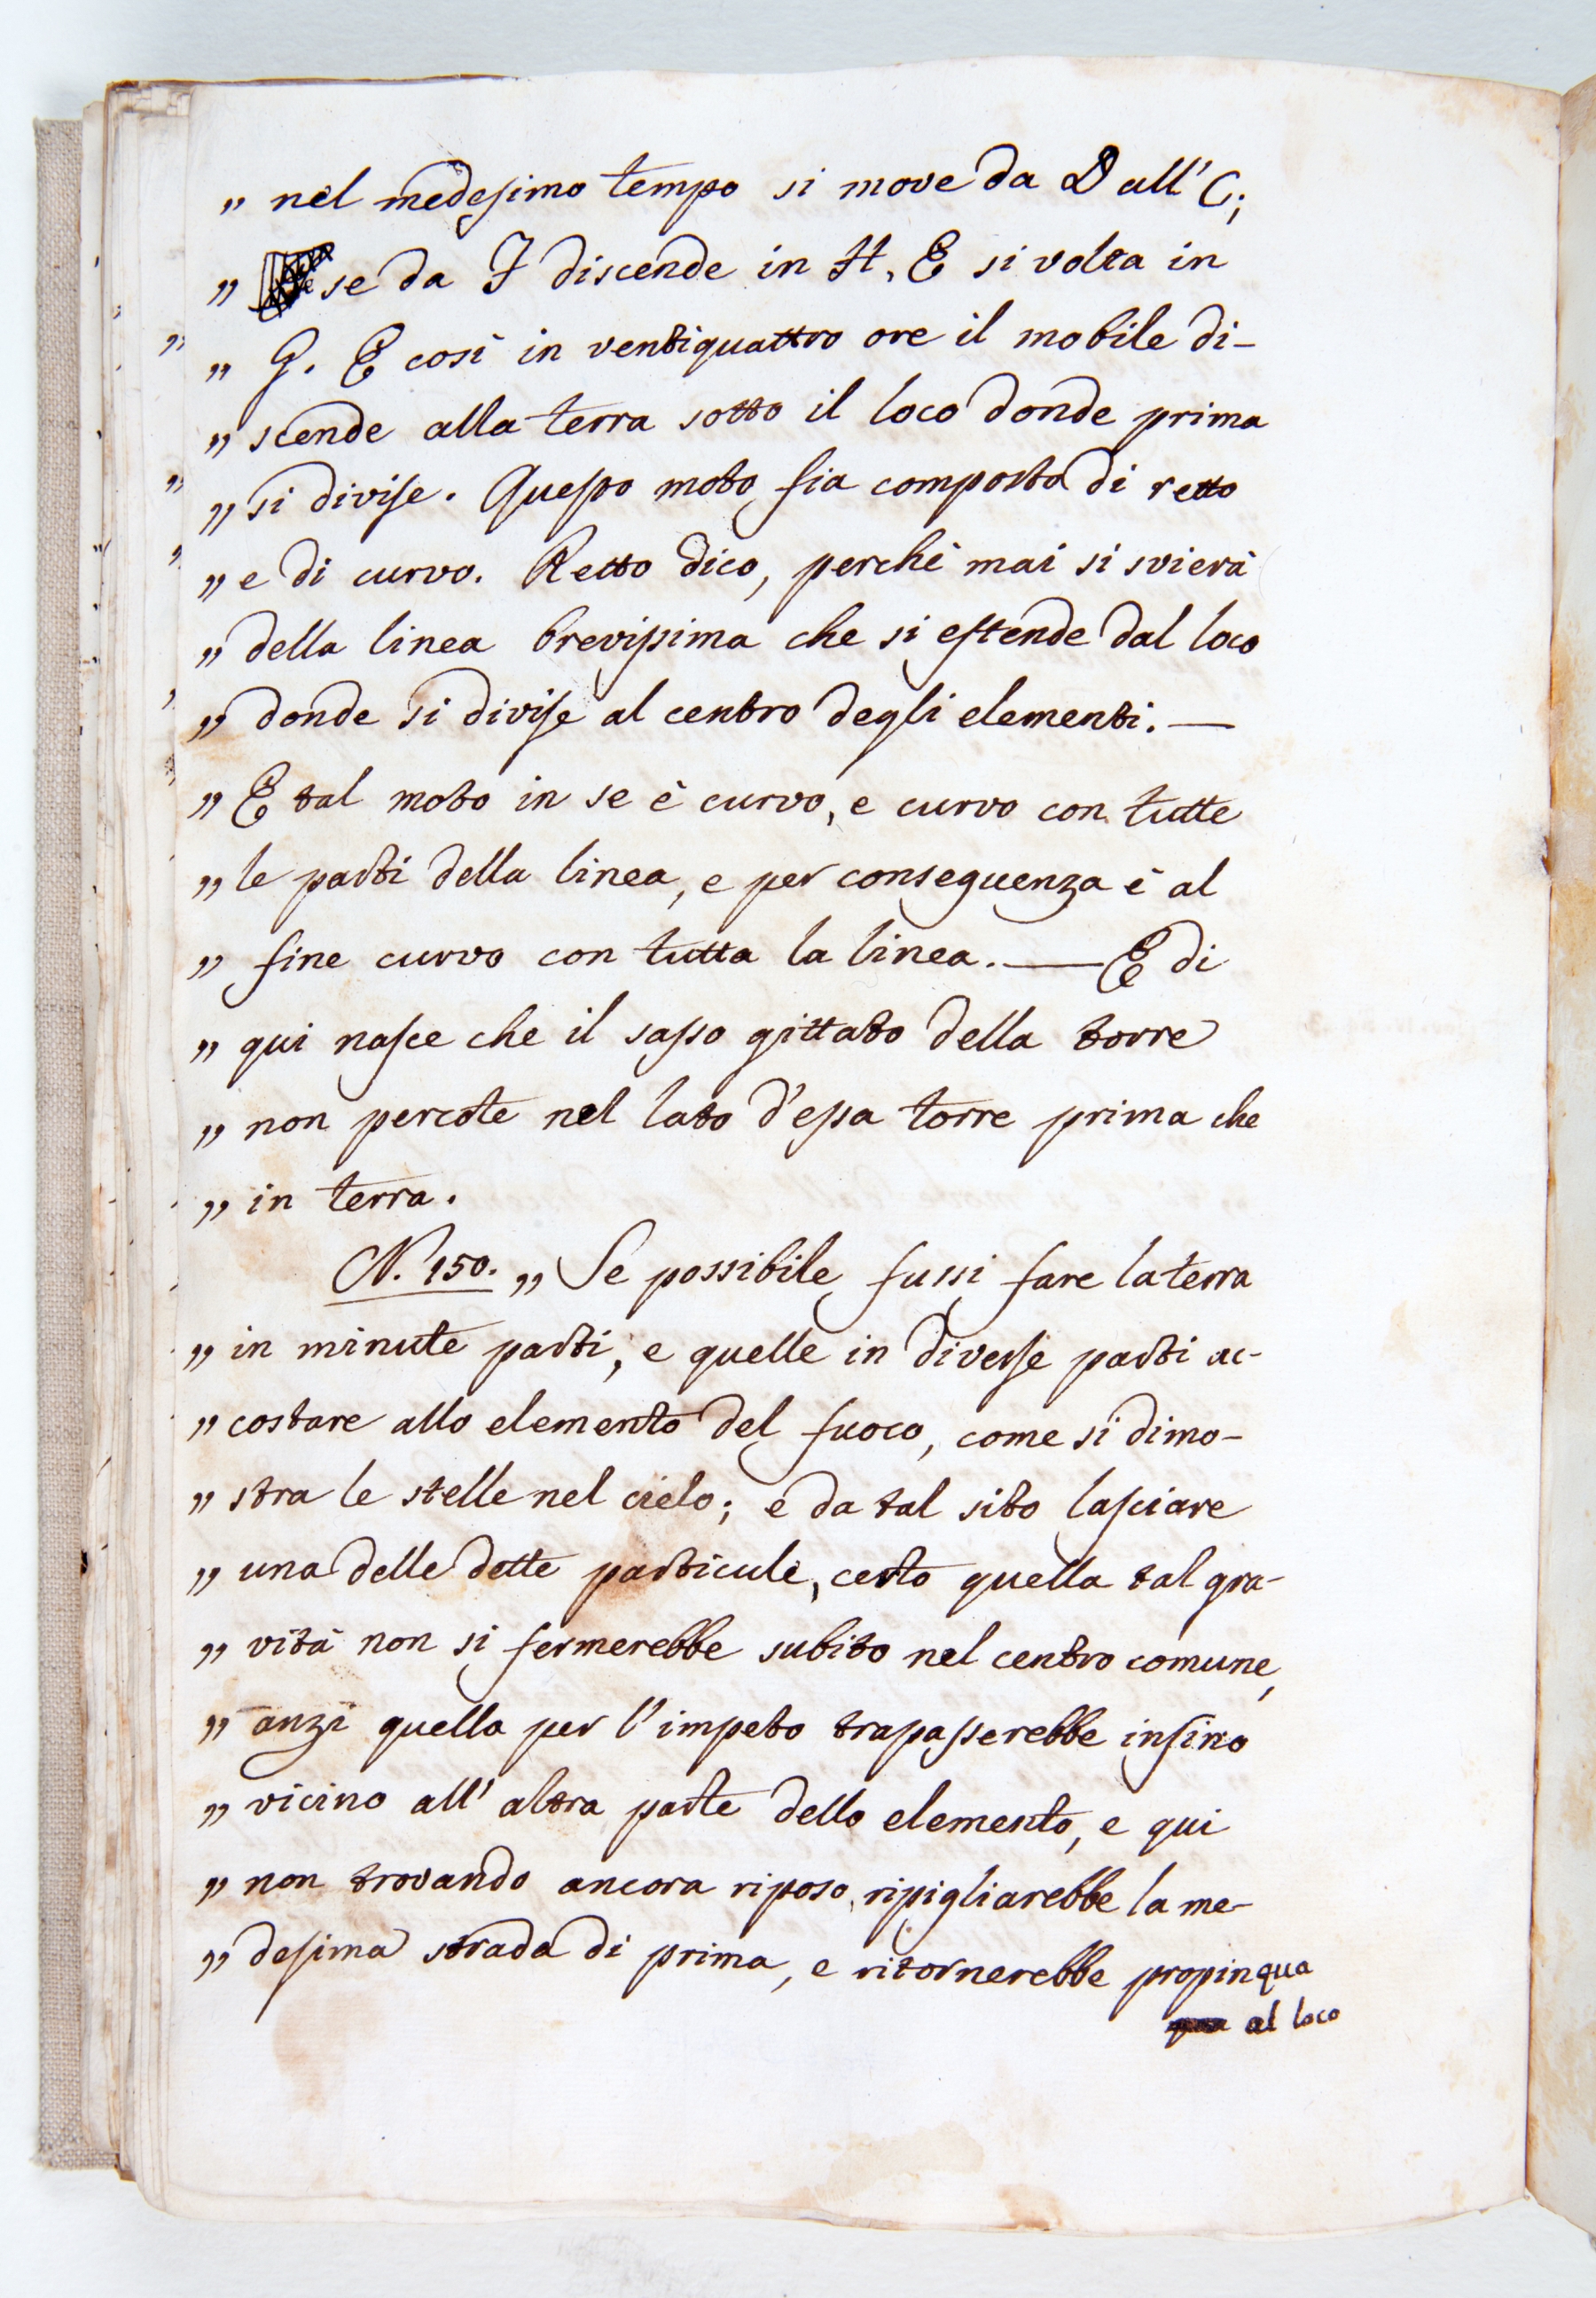 „ nel medesimo tempo si move da D all' C;
„ se da I discende in H, E si volta in
„ G. E così in ventiquattro ore il mobile di-
„ scende alla terra sotto il loco donde prima
„ si divise. Questo moto fia composto di retto
„ e di curvo. Retto dico, perchè mai si svierà
„ della linea brevissima che si estende dal loco
„ donde si divise al centro degli elementi. —
„ E tal moto in se è curvo, e curvo con tutte
„ le parti della linea, e per conseguenza è al
„ fine curvo con tutta la linea. — E di
„ qui nasce che il sasso gittato della torre
„ non percote nel lato d'essa torre prima che
„ in terra.
N. 150. „ Se possibile fussi fare la terra
„ in minute parti, e quelle in diverse parti ac-
„ costare allo elemento del fuoco, come si dimo-
„ stra le stelle nel cielo; e da tal sito lasciare
„ una delle dette particule, certo quella tal gra-
„ vità non si fermerebbe subito nel centro comune,
„ anzi quella per l'impeto trapasserebbe insino
„ vicino all' altra parte dello elemento, e qui
„ non trovando ancora riposo, ripigliarebbe la me-
„ desima strada di prima, e ritornerebbe propinqua
al loco